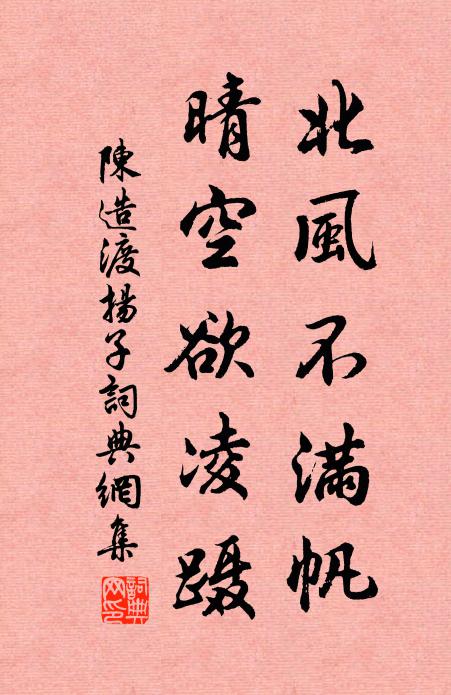 北風不滿帆
晴空欲凌蹑
陳造渡揚子詞典網集
詞典網印